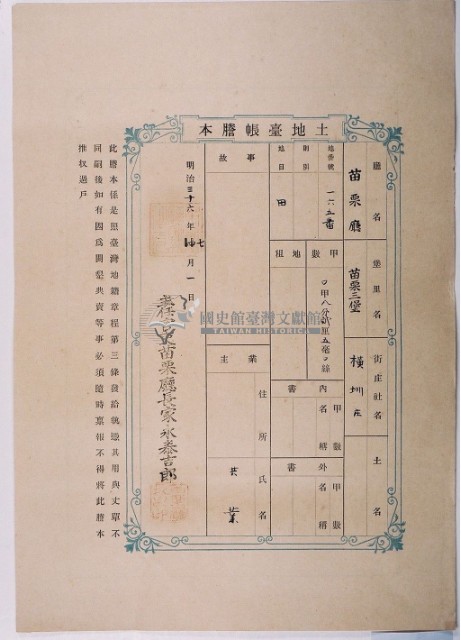 土地臺帳謄本
廳名
苗栗廳
堡里名
苗栗三堡
街庄社名
橫圳庄
土名
地番號
一六五番
則別
地目
田
甲數
〇甲八分
厘五毫〇絲
地租
內書
甲數
名稱
外書
甲數
名稱
事故
業主
住所
氏名
業
明治三十六年
七月一日
苗栗廳長家永泰吉郎
此謄本係是照臺灣地籍章程第三條發給執憑其用與丈單不
同嗣後如有因為開墾典賣等事必須隨時稟報不得將此謄本
推収過戶
國史館臺灣文獻館
TAIWAN HISTORICA